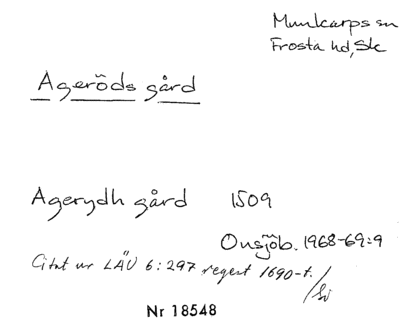 Munkarps sn
Frosta hd, Sk
Ageröds gård
Agerydh gård 1509
Onsjöb. 1968-69:9
Citat ur LÄU 6:297 regest 1690-t.
Nr 18548